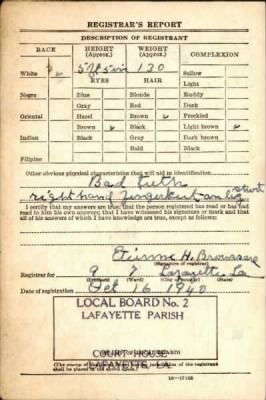 REGISTRAR'S REPORT
DESCRIPTION OF REGISTRANT
RACE HEIGHT (Approx.) WEIGHT (Approx.) COMPLEXION
White 5 ft 5 in 130 Sallow
EYES HAIR Light
Negro Blue Blonde Ruddy
Gray Red Dark
Oriental Hazel Brown Freckled
Brown Black Light brown
Indian Black Gray Dark brown
Bald Black
Filipino
Other obvious physical characteristics that will aid in identification
Bad teeth
right hand finger short
I certify that my answers are true; that the person registered has read or has had
read to him his own answers; that I have witnessed his signature or mark and that
all of his answers of which I have knowledge are true, except as follows:
Etienne H. Broussard
(Signature of registrar)
Registrar for 9 7 Lafayette La
(Precinct) (Ward) (City or county) (State)
Date of registration Oct 16 1940
LOCAL BOARD No. 2
LAFAYETTE PARISH
COURT HOUSE
LAFAYETTE, LA.
(The stamp of the
of the registrant
shall be placed in the above space.)
16—17105